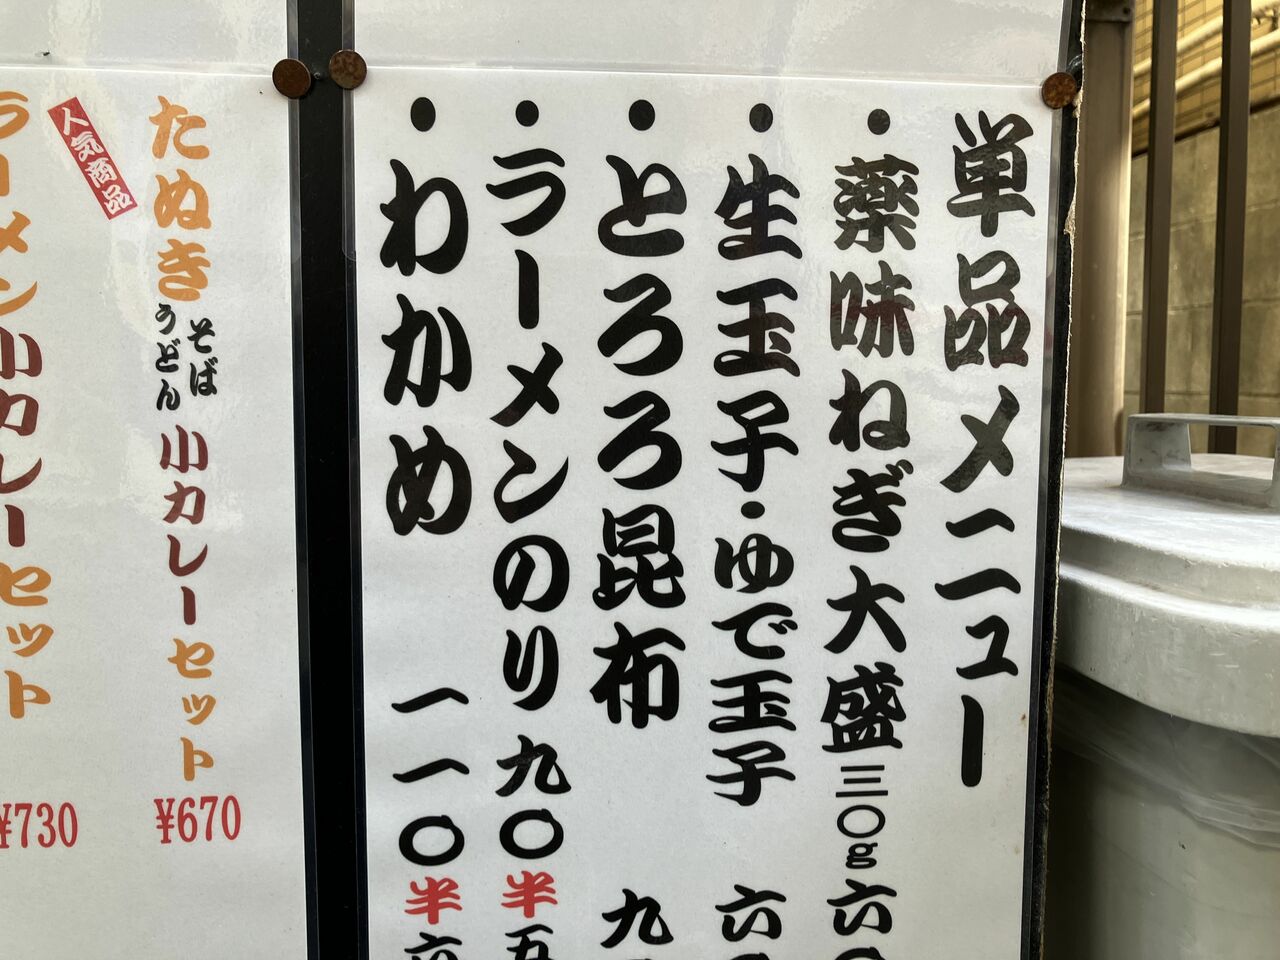 単品メニュー
・薬味ねぎ大盛三〇g六〇
・生玉子・ゆで玉子 六
・とろろ昆布 九
・ラーメンのり九〇半五
・わかめ 一一〇半六
人気商品
たぬきそばうどん小カレーセット
¥670
ラーメン小カレーセット
¥730